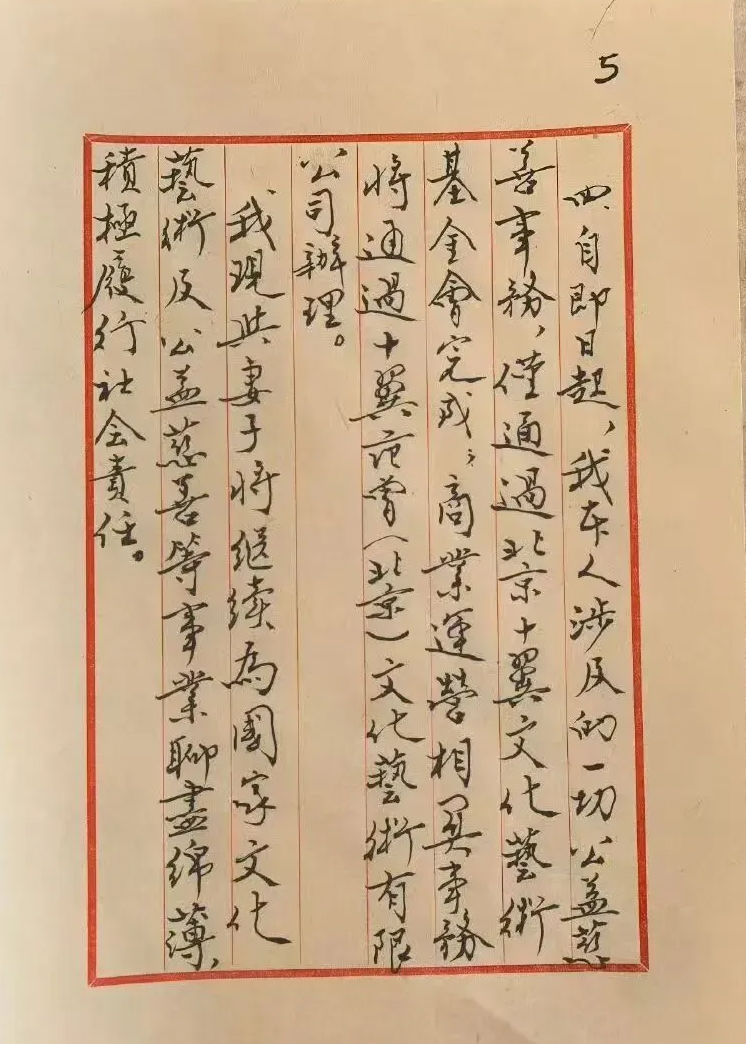 5
四、自即日起，我本人涉及的一切公益慈
善事務，僅通過北京十翼文化藝術
基金會完成；商業運營相関事務
將通過十翼范曾（北京）文化藝術有限
公司辦理。
我現與妻子將繼續為國家文化
藝術及公益慈善等事業聊盡綿薄，
積極履行社会責任。